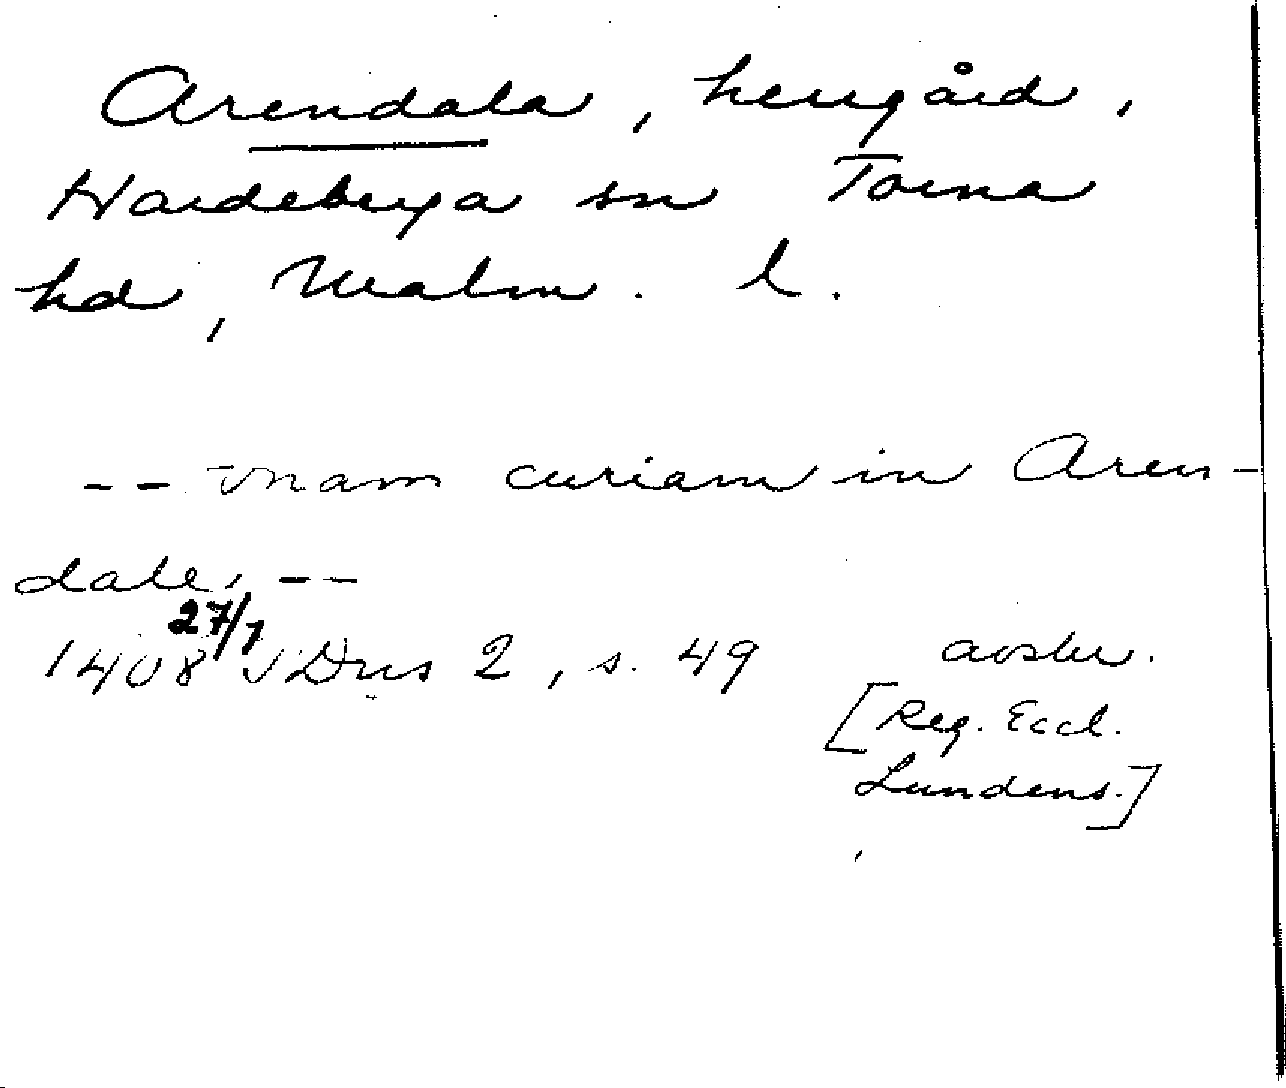 Arendala, herrgård,
Hardeberga sn Torna
hd, Malm. l.
-- vnam curiam in Aren-
dale, --
27/1
1408 SDns 2, s. 49 avskr.
[Reg. Eccl.
Lundens.]